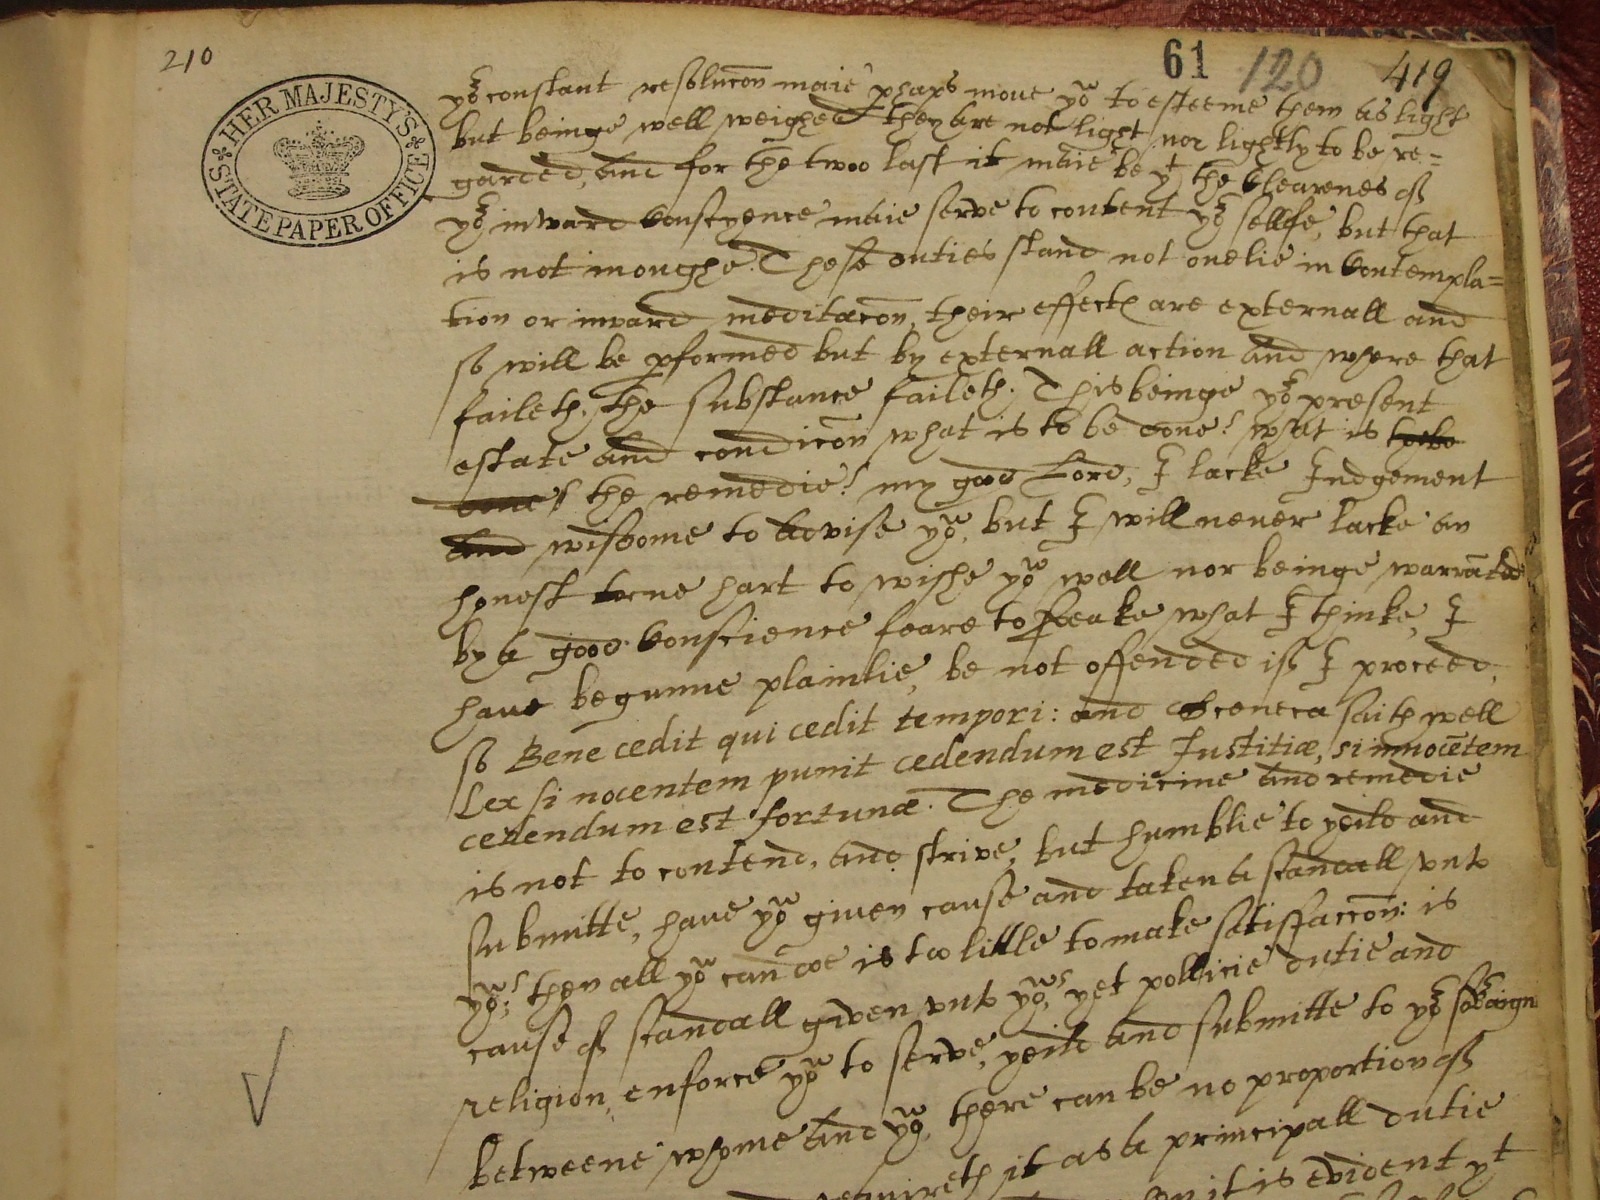 210
61 120 419
HER MAJESTY'S STATE PAPER OFFICE
yor constant resolucon maie phaps move you to esteeme them as light
but beinge well weighed they are not light, nor lightly to be re=
garded, and for the twoo last it maie be yt the clearenes of
yor inward conscyence maie serve to content yor sellfe, but that
is not inoughe. These duties stand not onelie in contempla=
tion or inward meditacon, their effects are externall and
so will be pformed but by externall action and where that
faileth, the substance faileth. This beinge yor present
estate and condicon what is to be done? what is
the remedie? my good Lord, I lacke Judgement
and wisdome to advise you, but I will never lacke an
honest true hart to wishe you well nor beinge warrāted
by a good conscience feare to speake what I thinke, I
have begunne plainlie, be not offended if I proceed,
so Bene cedit qui cedit tempori: and Seneca saith well
Lex si nocentem punit cedendum est Justitiæ, si innocētem
cedendum est fortunæ. The medicine and remedie
is not to contend, and strive, but humblie to yeild and
submitte, have you given cause and taken a scandall unto
you? then all you can doe is too little to make satisfaccon: is
cause of scandall given unto you? yet pollicie dutie and
religion, enforce you to serve, yeild and submitte to yor sovaign
betweene whome and you, there can be no proportion of
requireth it as a principall dutie
it is evident yt